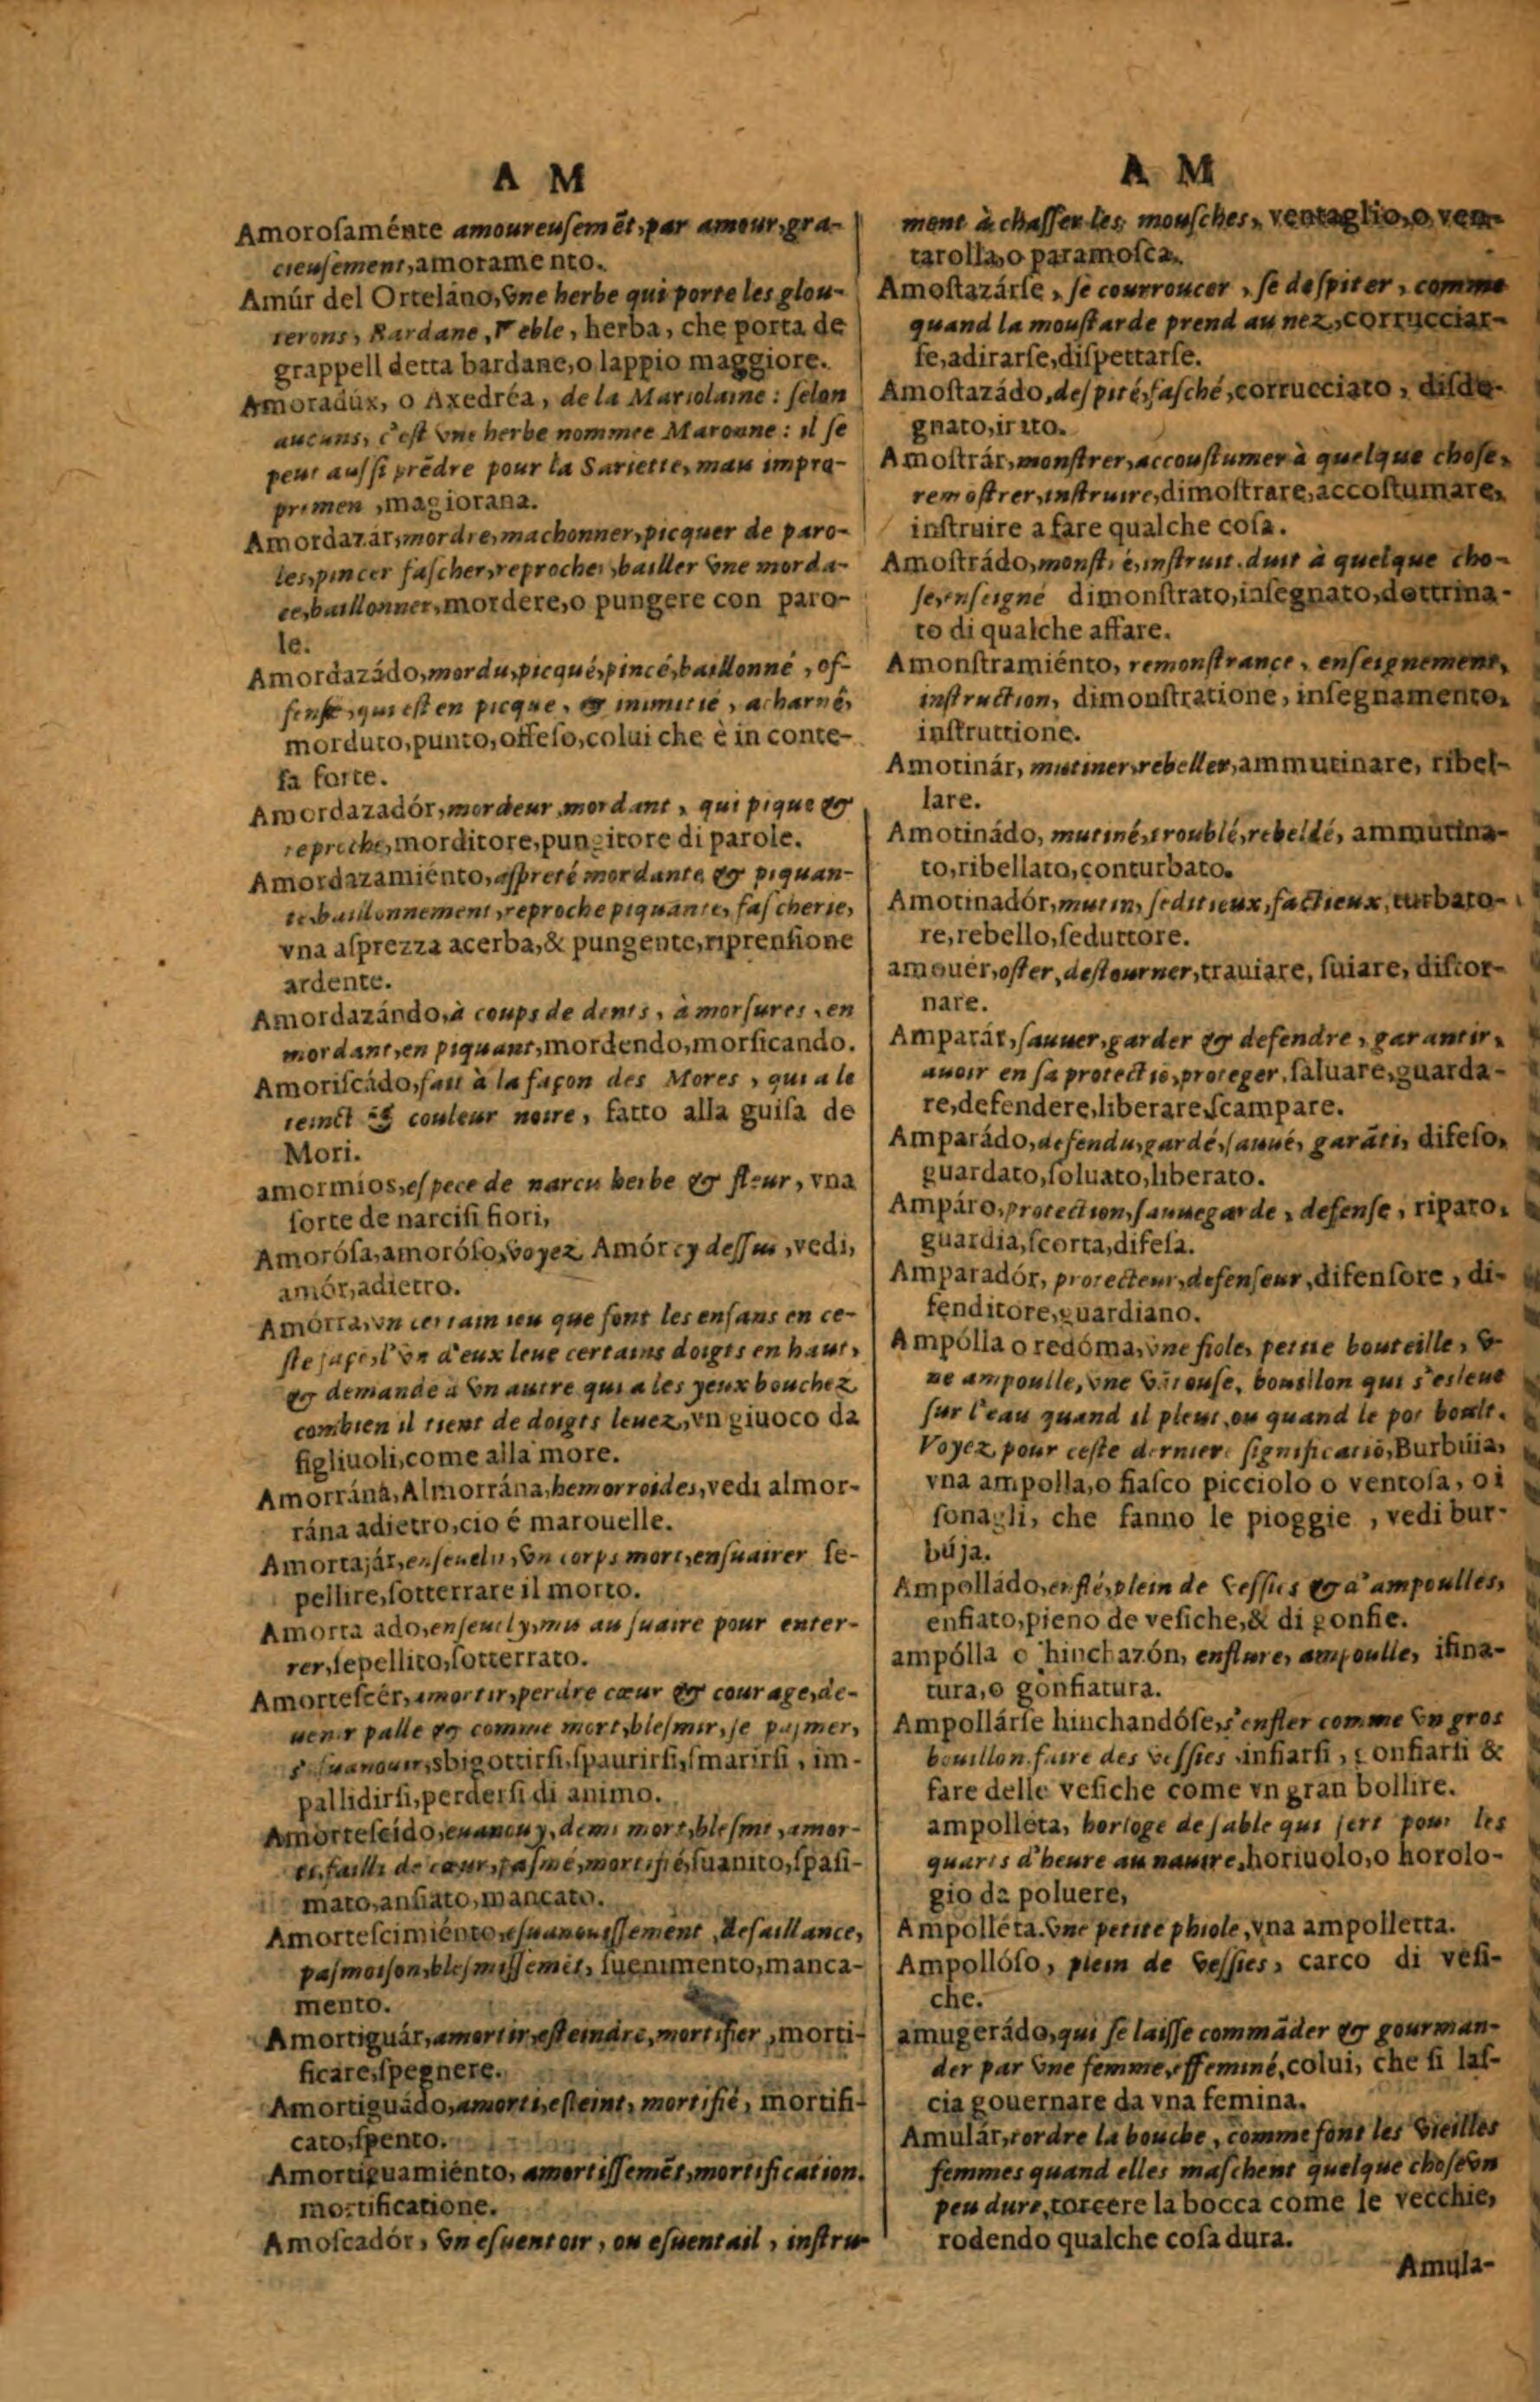 A M
Amoroſaménte amoureuſemẽt, par amour, gra-
cieuſement, amoramento.
Amúr del Ortelàno, vne herbe qui porte les glou-
terons, Bardane, Yeble, herba, che porta de
grappell detta bardane, o lappio maggiore.
Amoradúx, o Axedréa, de la Mariolaine: ſelon
aucuns, c'eſt vne herbe nommee Maroune: il ſe
peut auſſi prẽdre pour la Sariette, mais impro-
primen, magiorana.
Amordazár, mordre, machonner, picquer de paro-
les, pincer faſcher, reprocher, bailler vne morda-
ce, baillonner, mordere, o pungere con paro-
le.
Amordazádo, mordu, picqué, pincé, baillonné, of-
fensé, qui eſt en picque, & inimitié, acharné,
morduto, punto, offeſo, colui che è in conte-
ſa forte.
Amordazadór, mordeur, mordant, qui pique &
reproche, morditore, pungitore di parole.
Amordazamiénto, aſpreté mordante & piquan-
te, baillonnement, reproche piquante, faſcherie,
vna aſprezza acerba, & pungente, riprenſione
ardente.
Amordazándo, à coups de dents, à morſures, en
mordant, en piquant, mordendo, morſicando.
Amoriſcádo, fait à la façon des Mores, qui a le
teinct & couleur noire, fatto alla guiſa de
Mori.
amormíos, eſpece de narcis herbe & fleur, vna
ſorte de narciſi fiori,
Amoróſa, amoróſo, voyez Amór cy deſſus, vedi,
amór, adietro.
Amórra, vn certain ieu que font les enfans en ce-
ſte façõ, l'vn d'eux leue certains doigts en haut,
& demande à vn autre qui a les yeux bouchez
combien il tient de doigts leuez, vn giuoco da
figliuoli, come alla more.
Amorrána, Almorrána, hemorroides, vedi almor-
rána adietro, cio é marouelle.
Amortajár, enſeuelir, vn corps mort, enſuairer ſe-
pellire, ſotterrare il morto.
Amorta ado, enſeuely, mis au ſuaire pour enter-
rer, ſepellito, ſotterrato.
Amorteſcér, amortir, perdre cœur & courage, de-
uenir palle & comme mort, bleſmir, ſe paſmer,
s'eſuanouir, sbigottirſi, ſpaurirſi, ſmarirſi, im-
pallidirſi, perderſi di animo.
Amorteſcído, euanouy, demi mort, bleſmi, amor-
ti, failli de cœur, paſmé, mortifié, ſuanito, ſpaſi-
mato, anſiato, mancato.
Amorteſcimiénto, eſuanouiſſement, defaillance,
paſmoiſon, bleſmiſſemẽt, ſuenimento, manca-
mento.
Amortiguár, amortir, eſteindre, mortifier, morti-
ficare, ſpegnere.
Amortiguádo, amorti, eſteint, mortifié, mortifi-
cato, ſpento.
Amortiguamiénto, amortiſſemẽt, mortification.
mortificatione.
Amoſcadór, vn eſuentoir, ou eſuentail, inſtru-
A M
ment à chaſſer les mouſches, ventaglio, o ven-
tarolla, o paramoſca.
Amoſtazárſe, ſe courroucer, ſe deſpiter, comme
quand la mouſtarde prend au nez, corrucciar-
ſe, adirarſe, diſpettarſe.
Amoſtazádo, deſpité, faſché, corrucciato, diſde-
gnato, irito.
Amoſtrár, monſtrer, accouſtumer à quelque choſe,
remoſtrer, inſtruire, dimoſtrare, accoſtumare,
inſtruire a fare qualche coſa.
Amoſtrádo, monſtré, inſtruit, duit à quelque cho-
ſe, enſeigné dimonſtrato, inſegnato, dottrina-
to di qualche affare.
Amonſtramiénto, remonſtrance, enſeignement,
inſtruction, dimonſtratione, inſegnamento,
inſtruttione.
Amotinár, mutiner, rebeller, ammutinare, ribel-
lare.
Amotinádo, mutiné, troublé, rebellé, ammutina-
to, ribellato, conturbato.
Amotinadór, mutin, ſeditieux, factieux, turbato-
re, rebello, ſeduttore.
amouér, oſter, deſtourner, trauiare, ſuiare, diſtor-
nare.
Amparár, ſauuer, garder & defendre, garantir,
auoir en ſa protectiõ, proteger, ſaluare, guarda-
re, defendere, liberare, ſcampare.
Amparádo, defendu, gardé, ſauué, garãti, difeſo,
guardato, ſoluato, liberato.
Ampáro, protection, ſauuegarde, defenſe, riparo,
guardia, ſcorta, difeſa.
Amparadór, protecteur, defenſeur, difenſore, di-
fenditore, guardiano.
Ampólla o redóma, vne fiole, petite bouteille, v-
ne ampoulle, vne vẽtouſe, bouillon qui s'esleue
ſur l'eau quand il pleut, ou quand le pot boult.
Voyez pour ceſte derniere ſignificatiõ, Burbúia,
vna ampolla, o fiaſco picciolo o ventoſa, oi
ſonagli, che fanno le pioggie, vedi bur-
búja.
Ampolládo, enflé, plein de veſſies & d'ampoulles,
enfiato, pieno de veſiche, & di gonfie.
ampólla o hinchazón, enflure, ampoulle, ifina-
tura, o gonfiatura.
Ampollárſe hinchandóſe, s'enfler comme vn gros
bouillon, faire des veſſies, infiarſi, gonfiarſi &
fare delle veſiche come vn gran bollire.
ampolléta, horloge de ſable qui ſert pour les
quarts d'heure au nauire, horiuolo, o horolo-
gio da poluere,
Ampolléta. vne petite phiole, vna ampolletta.
Ampollóſo, plein de veſſies, carco di veſi-
che.
amugerádo, qui ſe laiſſe commãder & gourman-
der par vne femme, effeminé, colui, che ſi laſ-
cia gouernare da vna femina.
Amulár, tordre la bouche, comme font les vieilles
femmes quand elles maſchent quelque choſe vn
peu dure, torcere la bocca come le vecchie,
rodendo qualche coſa dura.
Amula-